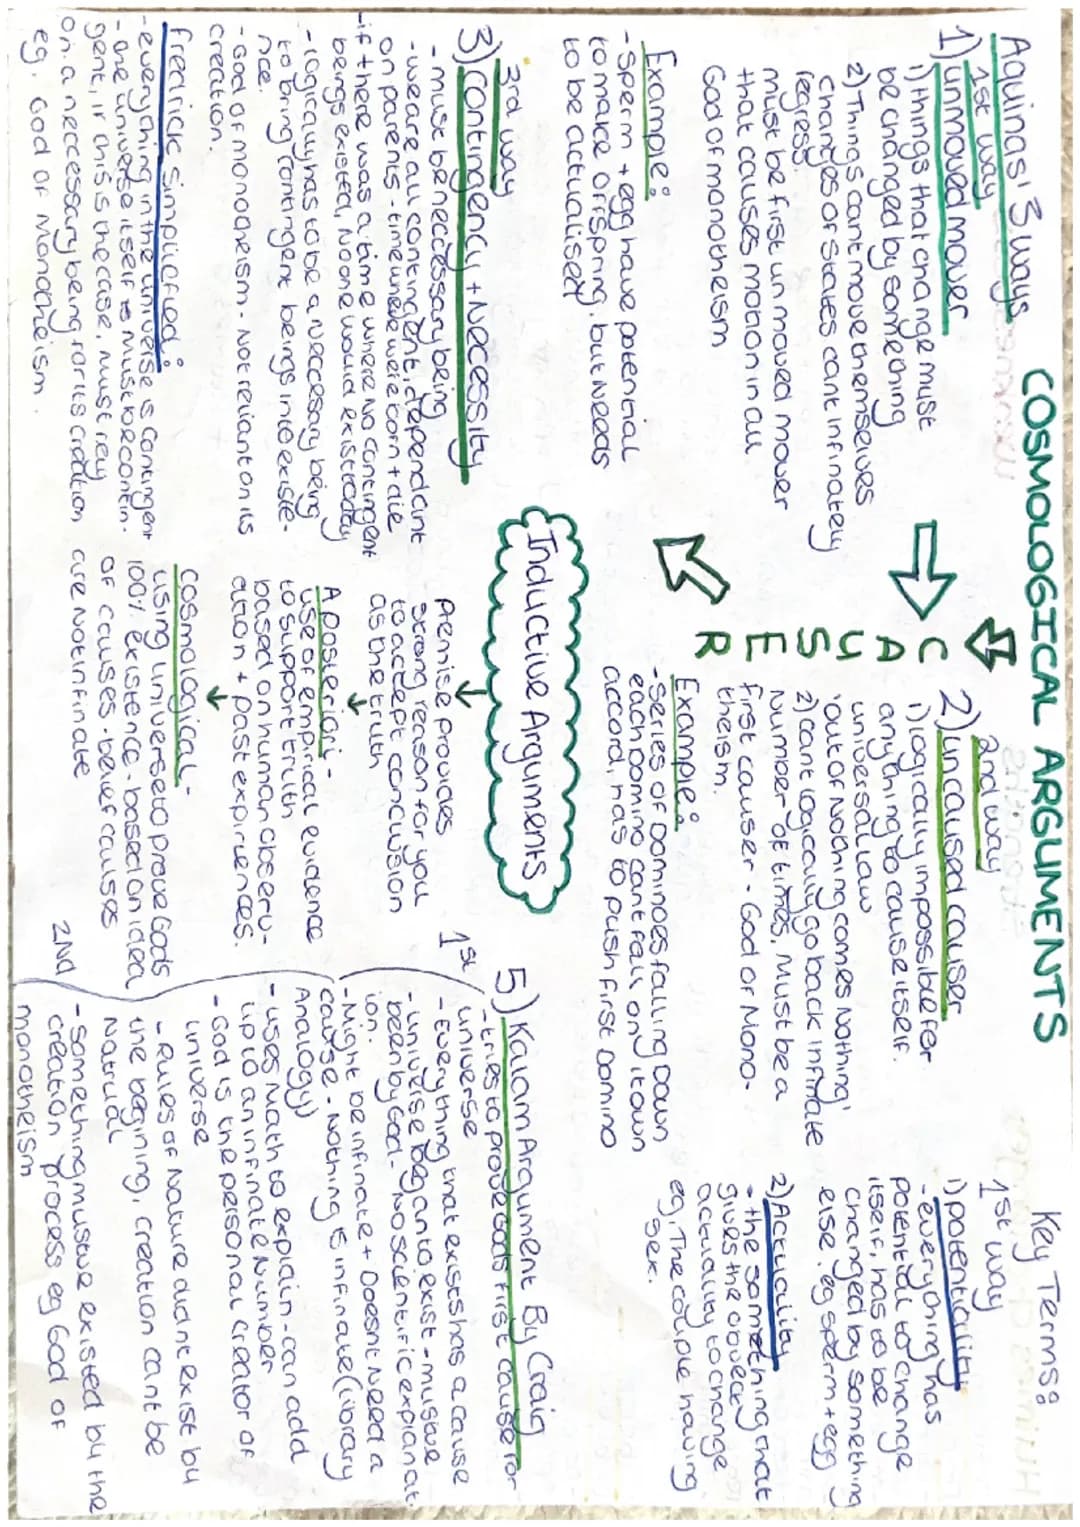 COSMOLOGICAL ARGUMENTS
Aquinas' 3 ways
1st way
1) unmoved mover
1) things that change must
be changed by something
2) Things cant move themselves
Changes of states cant infinatey
regress.
must be first unmoved mover
that causes motion in all
God of monotheism
Example:
- Sperm + egg have potential
to make offspring, but needs
to be actualised
2nd way
2) uncaused causer
1) logically impossible for
anything to cause itself.
'out of nothing comes nothing'
universal law
2) cant logically go back infinate
number of times. Must be a
first causer - God of Mono-
theism.
C
A
U
S
E
R
Example:
- Series of dominoes falling down
each domino cant fall on it own
accord, has to push first Domino
Key Terms:
1st way
1) potentiality
- everything has
potential to change
itself, has to be
changed by something
else. eg sperm + egg
2) Actuality
- the something that
gives the object
actuality to change
eg, The couple having
sex.
Inductive Arguments
Premise provides
strong reason for you
to accept conclusion
as the truth
A posteriori -
use of empirical evidence
to support truth
based on human observ-
ation + past expirences.
Cosmological -
using universe to prove Gods
100% existence - based on idea
of causes - belief causes
are not infinate
3rd way
3) Contingency + Necessity
- must be neccessary being
- we are all contingent, dependant
on parents - time where were born + die
- if there was a time where no contingent
beings existed, no one would exist today
- logically has to be a neccessary being
to bring contingent beings into existe-
nce.
- God of monotheism - not reliant on its
creation.
fredrick simplified:
- everything in the universe is contingent
- the universe itself must be contin-
gent, if this is the case, must rely
on a neccessary being for its creation
eg. God of Monotheism.
5) Kalam Argument By Craig
- tries to prove Gods first cause for
universe
1st
- Everything that exists has a cause
- universe began to exist - must've
been by God - No scientific explanat-
ion.
- Might be infinate + Doesnt need a
cause - Nothing is infinate (library
Analogy)
- uses math to explain - can add
up to an infinate number
- God is the personal creator of
universe
2nd
- Rules of Nature didnt exist by
the begining, creation cant be
Natrual
- something mustve existed by the
creation process eg God of
monotheism